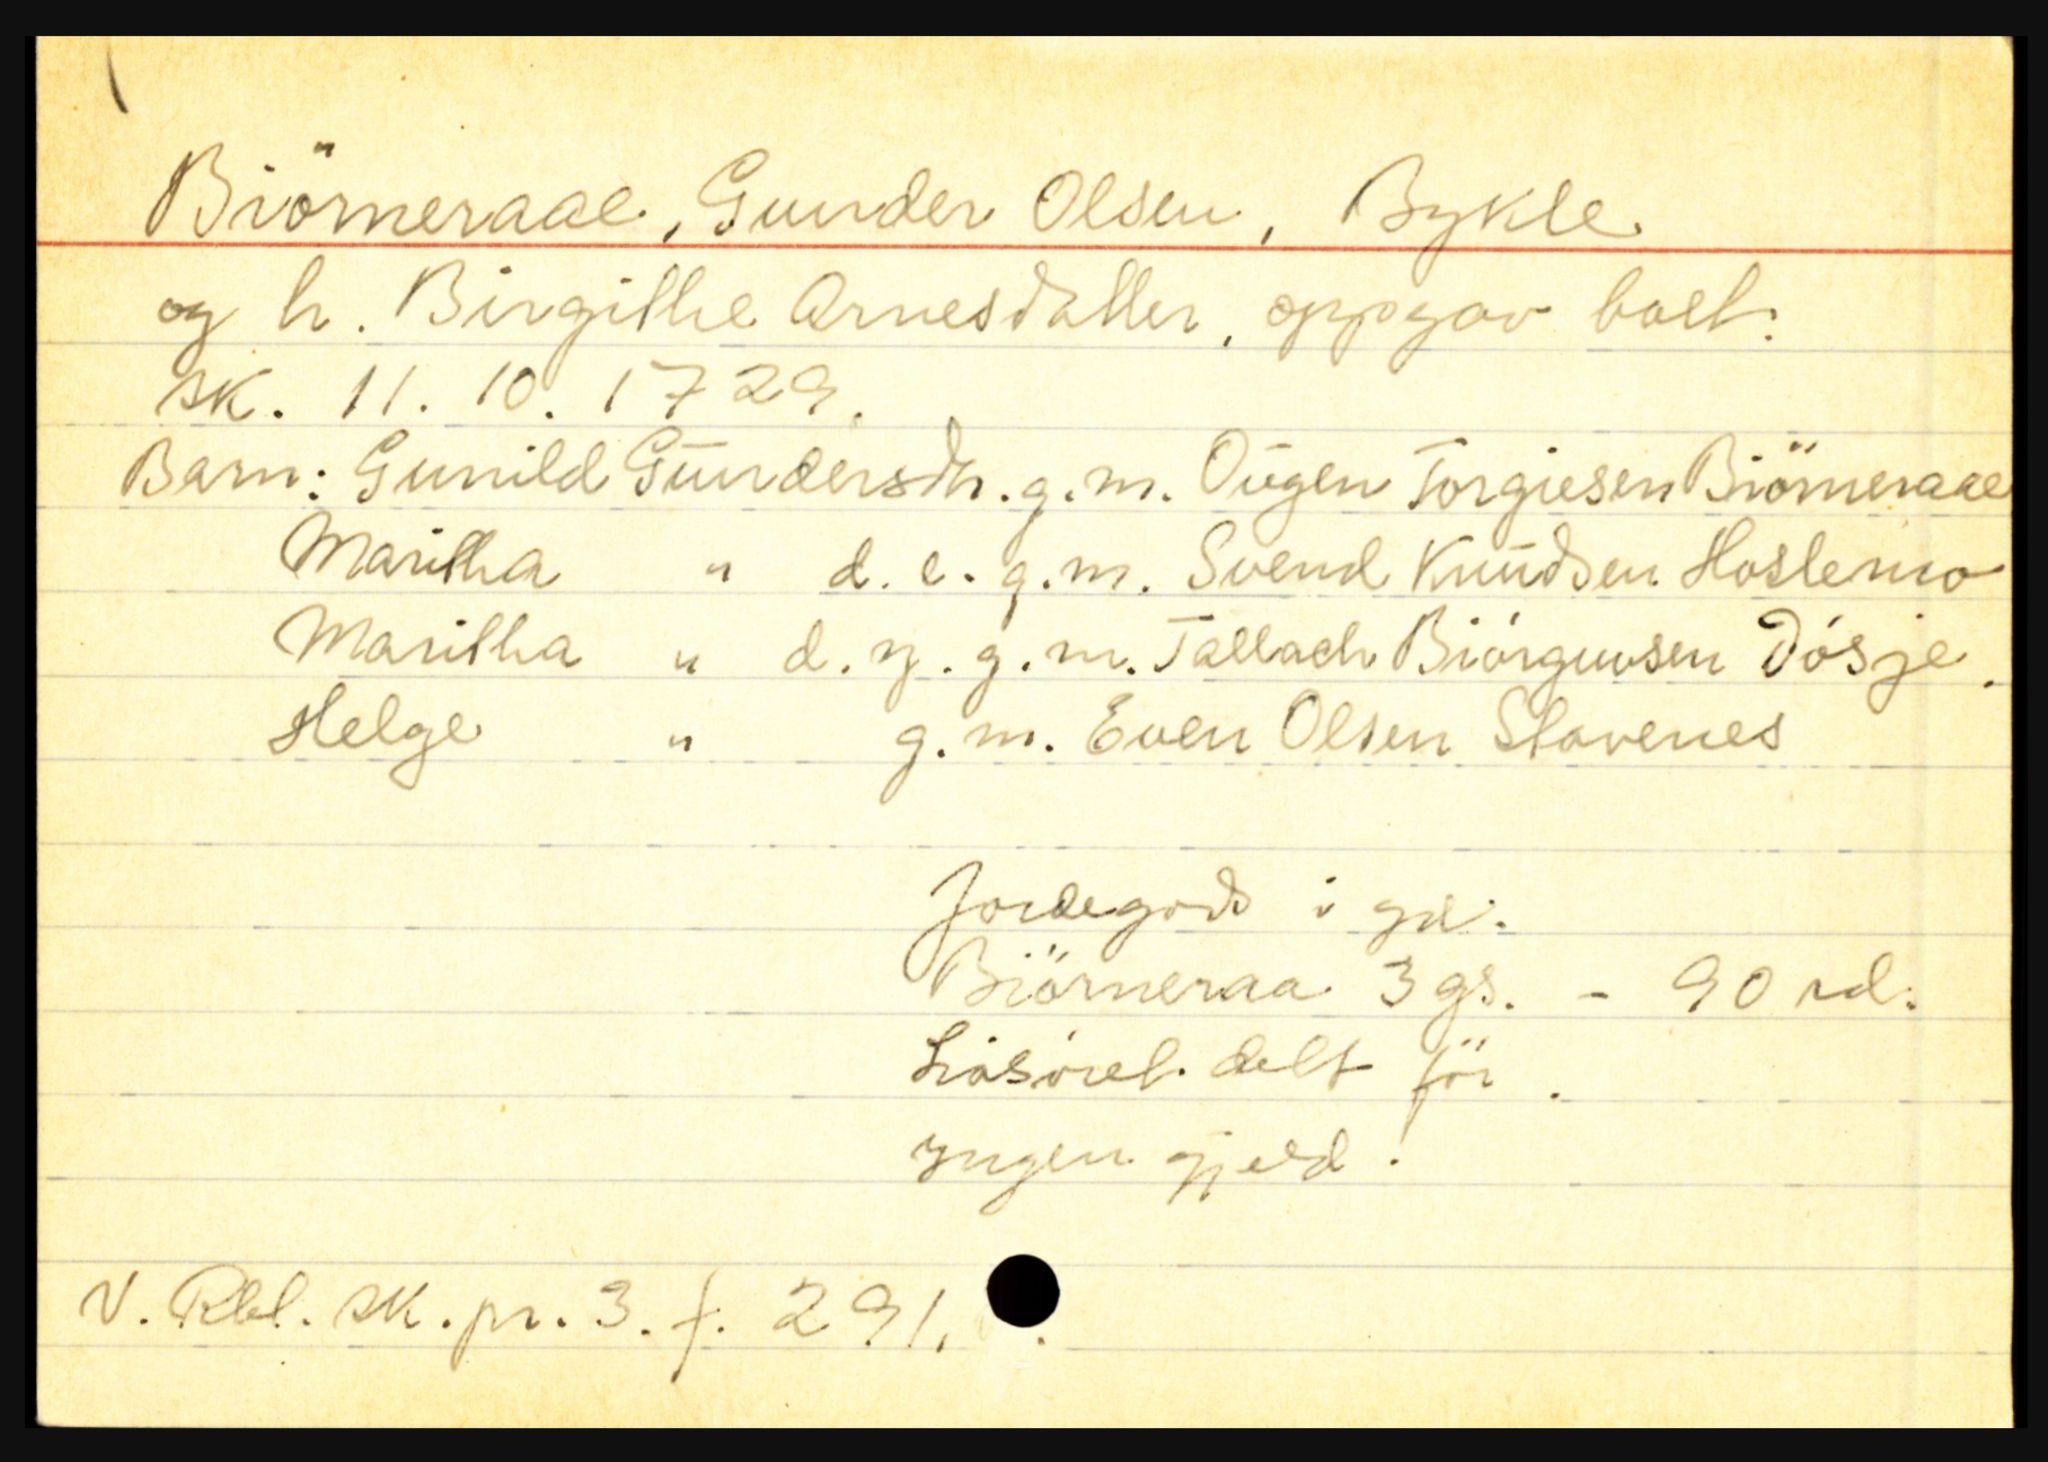 Biörneraae, Gunder Olsen, Bykle
og h. Birgithe Arnesdatter, oppgav boet.
sk. 11. 10. 1729.
Barn: Gunild Gūndersdtr. g.m. Oūgen Torgiesen Biörneraae
Maritha " d. e. g.m. Svend Knūdsen Hoslemo
Maritha " d. y. g.m. Tallach Biórguvsen Dósje.
Helge " g.m. Even Olsen Stavenes
Jordegods i gd.
Biörneraa 3 gs. - 90 rd.
Lösöret delt för.
Yngen gjeld.
V. Rbl. sk. pr. 3. f. 291.